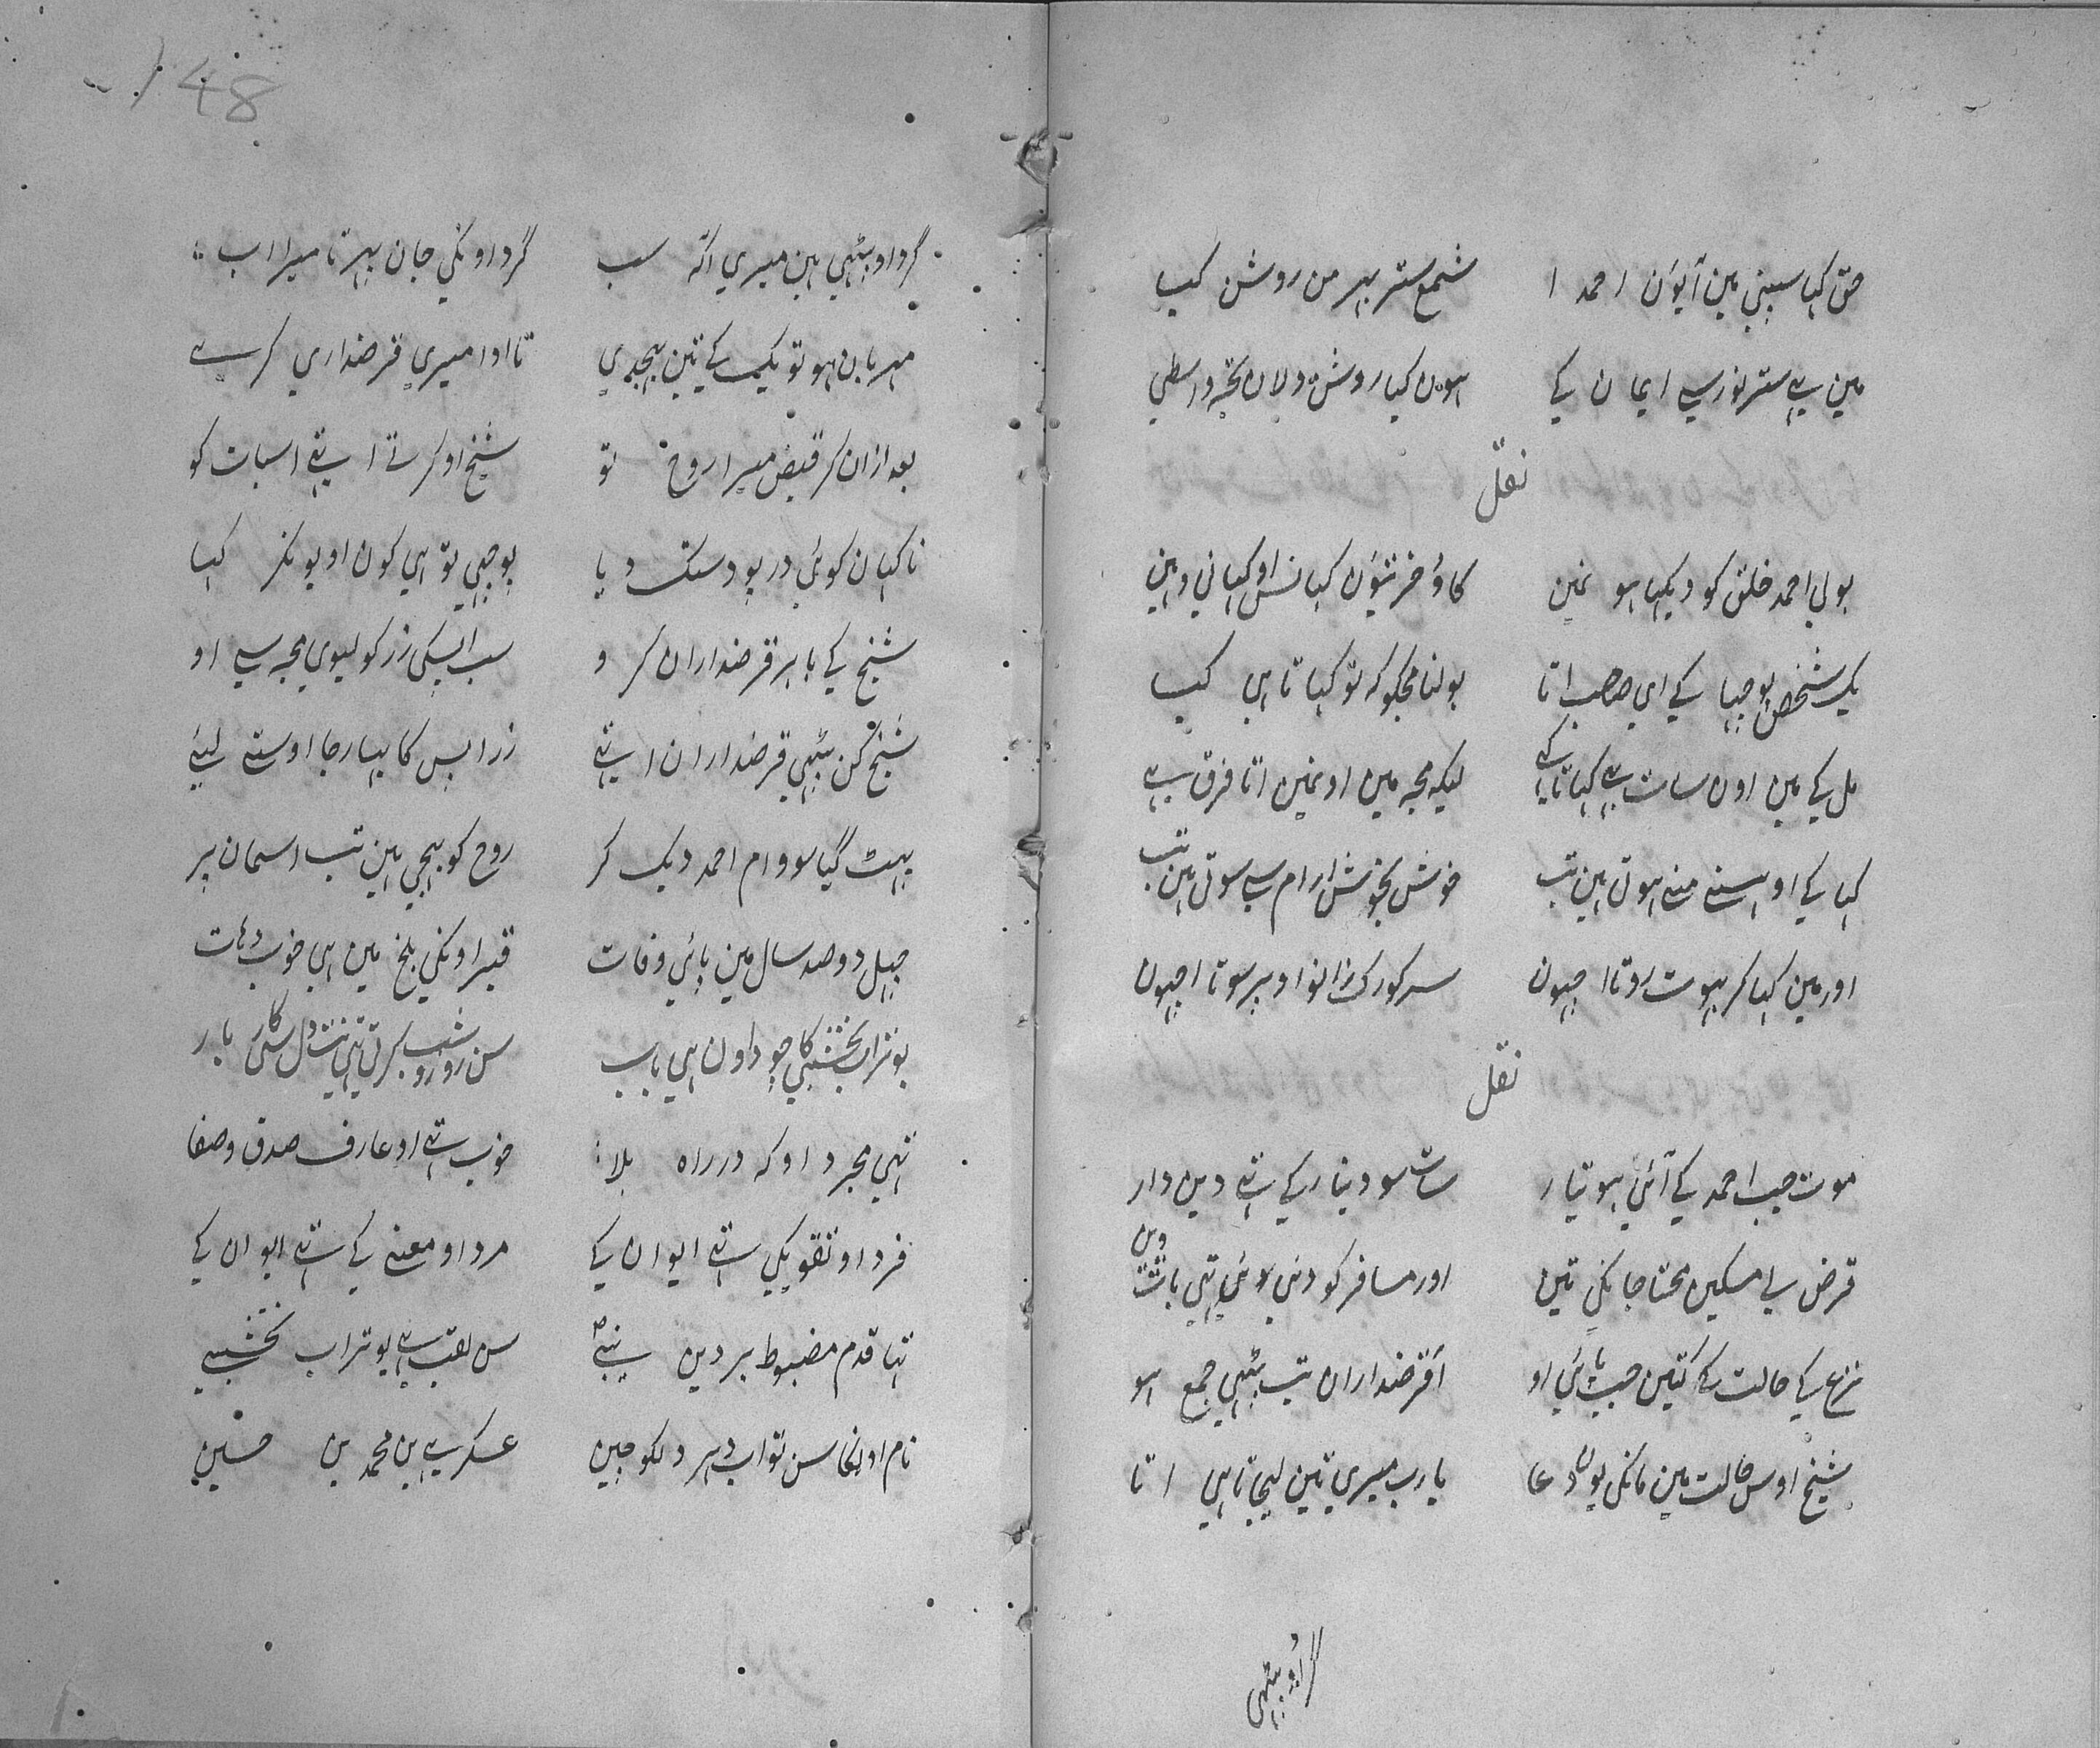 حق کہا سپنی مین آیون احمد ا شمع ستر بہر من روشن کیا
مین ہے ستر نور سے ایمان کے ہون کیا روشن ولان تجہ واسطی
نقل
بولی احمد خلق کو دیکہا ہو نمین کاو خر نتیون کہانس او کہانی وہین
یک شخص پوچہا کے ای صاحب اتا بولنا مجکو کہ تو کہاتا ہی کیا
مل کے مین اون سات ہے کہاتا کے لیکہ مجہ مین اونمین اتا فرق ہے
کہا کے او ہنستے ہوتی ہین تب خوش بخوش ارام سے سوتی ہین تب
اور مین کہا کر بہوت روتا اچہون سر کو رک زانو اوپر سوتا اچہون
نقل
موت جب احمد کے آئی ہو تیار سات سو دینار کے تہے دین دار
قرض لے مسکین محتاجانکی تین اور مسافر کو دئی تہی بانٹ وین
نزع کے حالت کے تین جب پائی او آقرضداران تب بیٹہی جمع ہو
شیخ اوس حالت مین مانگی یو دعا یا رب میری تین لیجاتا ہی اتا
گرد او بیٹہی
148
گرد او بیٹہی ہین میری اکہ سب گرد اونکی جان بہرتا میرا اب
مہربان ہو تو یک کے تین بہیجدی تا ادا میری قرضداری کرے
بعد ازان کر قبض میرا روح تو شیخ او کرتے تہے اسبات کو
ناکہان کوئی در پو دستک دیا پوچہی تو ہی کون او یو نکر کہا
شیخ کے باہر قرضداران کر و سب اپسکی زر کو لیوی مجہ سے او
شیخ کن بیٹہی قرضداران تہے زر اپس کا بہار جا اوستے لیئے
بہٹ گیا سو وام احمد دیک کر روح کو بہیجی ہین تب اسمان پر
چہل دو صد سال مین پائی وفات قبر اونکی بلخ مین ہی خوب دہات
بوتراب نخشبی کا جو داون ہی باب سن روز و شب
تہی مجرد او کہ در راہ بلا خوب تہے او عارف صدق و صفا
فرد او تقوی کے تہے ایوان کے مرد او معنے کے تہے ایوان کے
تہا قدم مضبوط بر دین نبی سن لقب ہے بوتراب نخشبے
نام اونکا سن تو اب دہر دلکو چین عسکرے بن محمد بن حسین